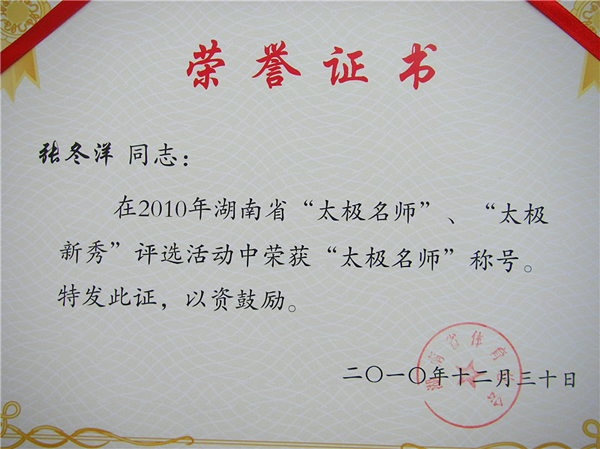 荣誉证书
张冬洋 同志：
在2010年湖南省“太极名师”、“太极
新秀”评选活动中荣获“太极名师”称号。
特发此证，以资鼓励。
二〇一〇年十二月三十日
湖南省体育